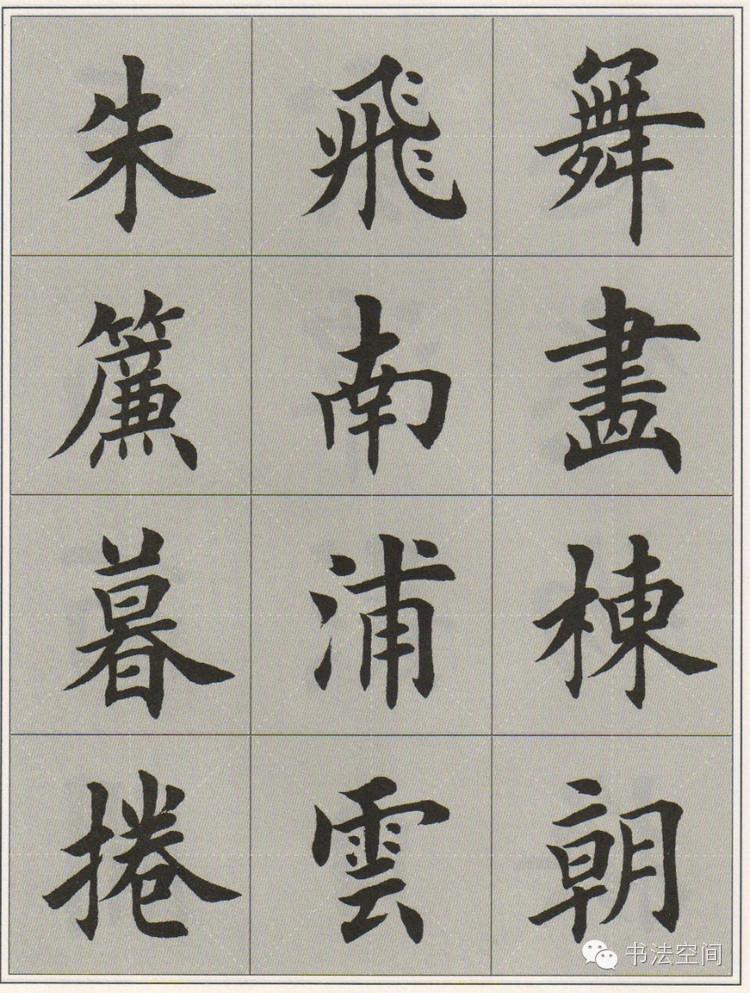 舞畫棟朝
飛南浦雲
朱簾暮捲
书法空间